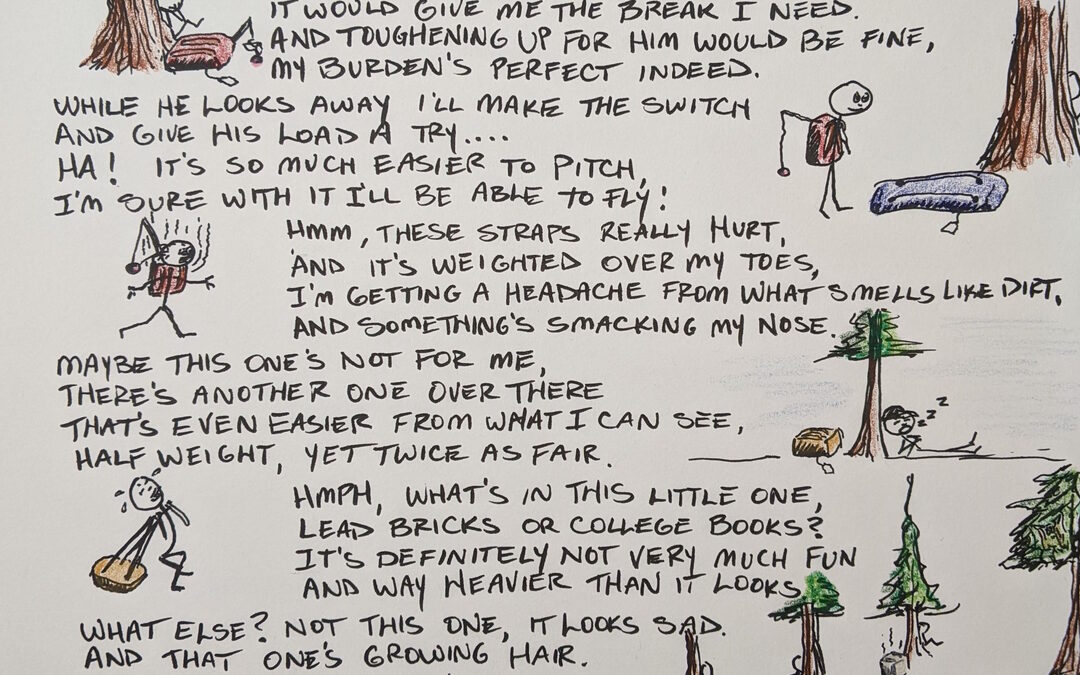 IT WOULD GIVE ME THE BREAK I NEED.
AND TOUGHENING UP FOR HIM WOULD BE FINE,
MY BURDEN'S PERFECT INDEED.
WHILE HE LOOKS AWAY I'LL MAKE THE SWITCH
AND GIVE HIS LOAD A TRY....
HA! IT'S SO MUCH EASIER TO PITCH,
I'M SURE WITH IT I'LL BE ABLE TO FLY!
HMM, THESE STRAPS REALLY HURT,
AND IT'S WEIGHTED OVER MY TOES,
I'M GETTING A HEADACHE FROM WHAT SMELLS LIKE DIRT,
AND SOMETHING'S SMACKING MY NOSE.
MAYBE THIS ONE'S NOT FOR ME,
THERE'S ANOTHER ONE OVER THERE
THAT'S EVEN EASIER FROM WHAT I CAN SEE,
HALF WEIGHT, YET TWICE AS FAIR.
z z z
HMPH, WHAT'S IN THIS LITTLE ONE,
LEAD BRICKS OR COLLEGE BOOKS?
IT'S DEFINITELY NOT VERY MUCH FUN
AND WAY HEAVIER THAN IT LOOKS
WHAT ELSE? NOT THIS ONE, IT LOOKS SAD.
AND THAT ONE'S GROWING HAIR.